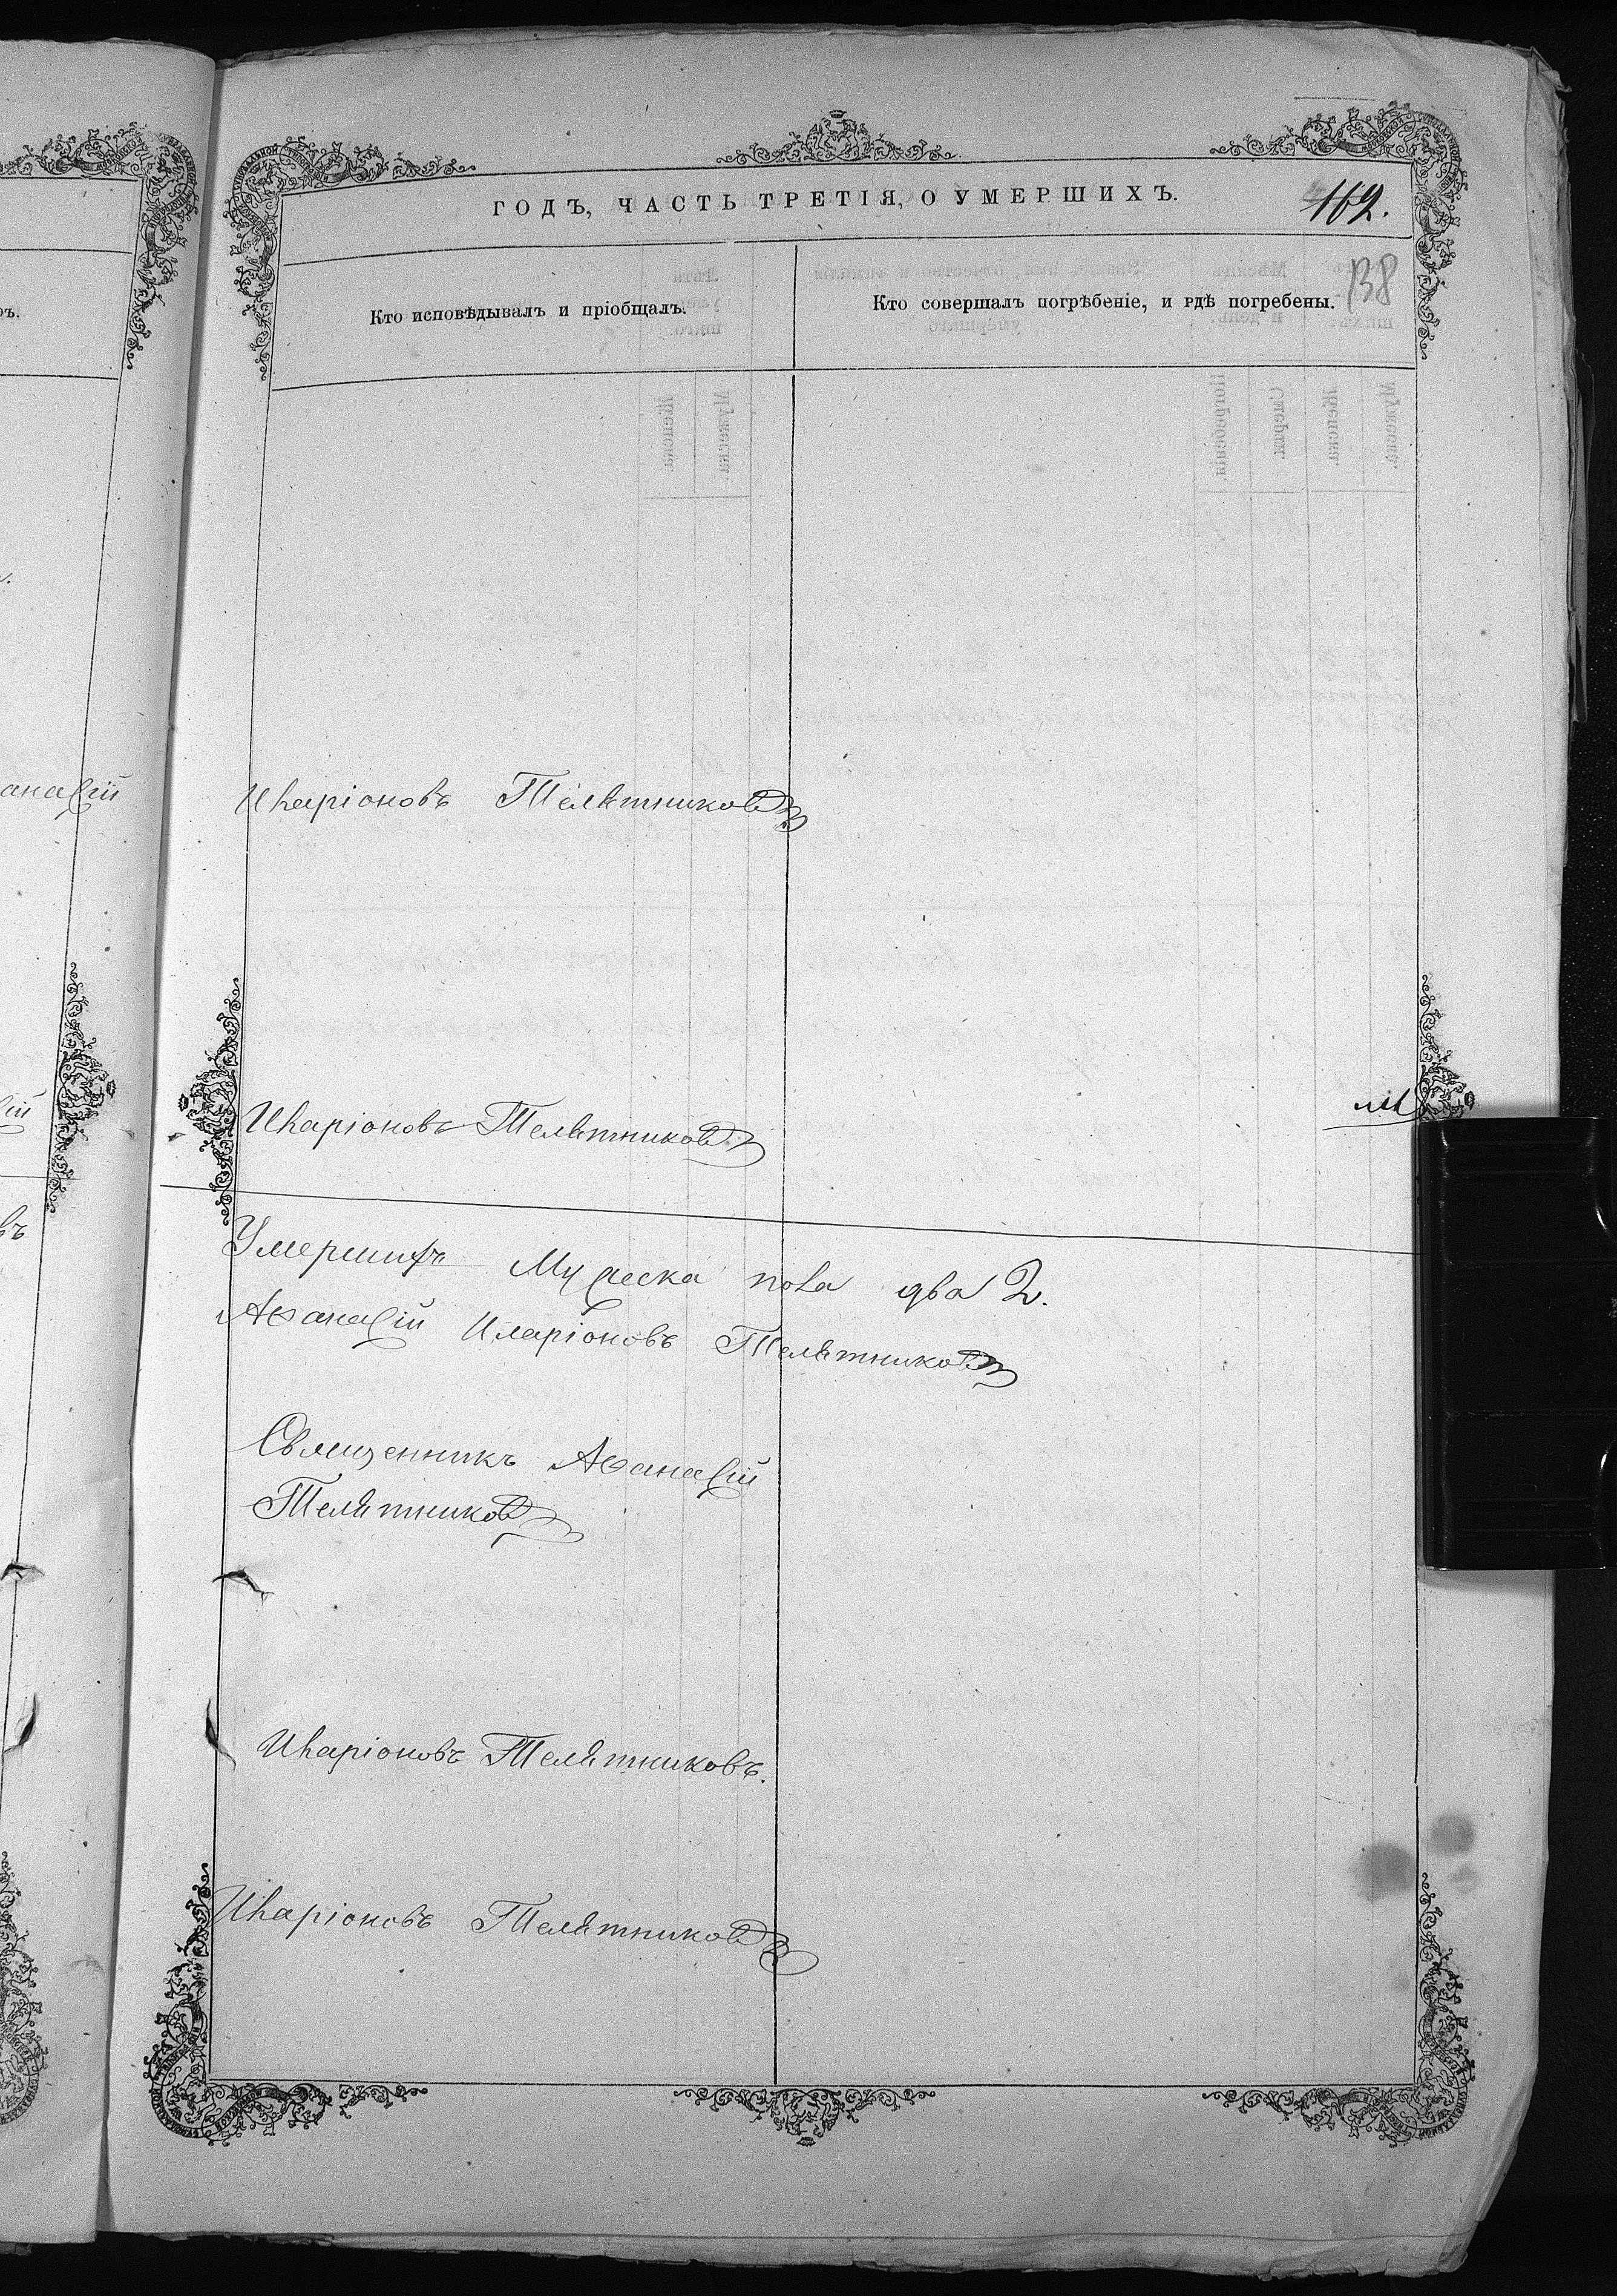 ГОДЪ, ЧАСТЬ ТРЕТІЯ, О УМЕРШИХЪ.
162.
138
Кто исповѣдывалъ и пріобщалъ.
Кто совершалъ погрѣбеніе, и гдѣ погребены.
Иларіоновъ Телятниковъ
Иларіоновъ Телятниковъ
Умершихъ Мужеска пола два 2.
Аѳанасій Иларіоновъ Телятниковъ
Священникъ Аѳанасій
Телятниковъ
Иларіоновъ Телятниковъ.
Иларіоновъ Телятниковъ